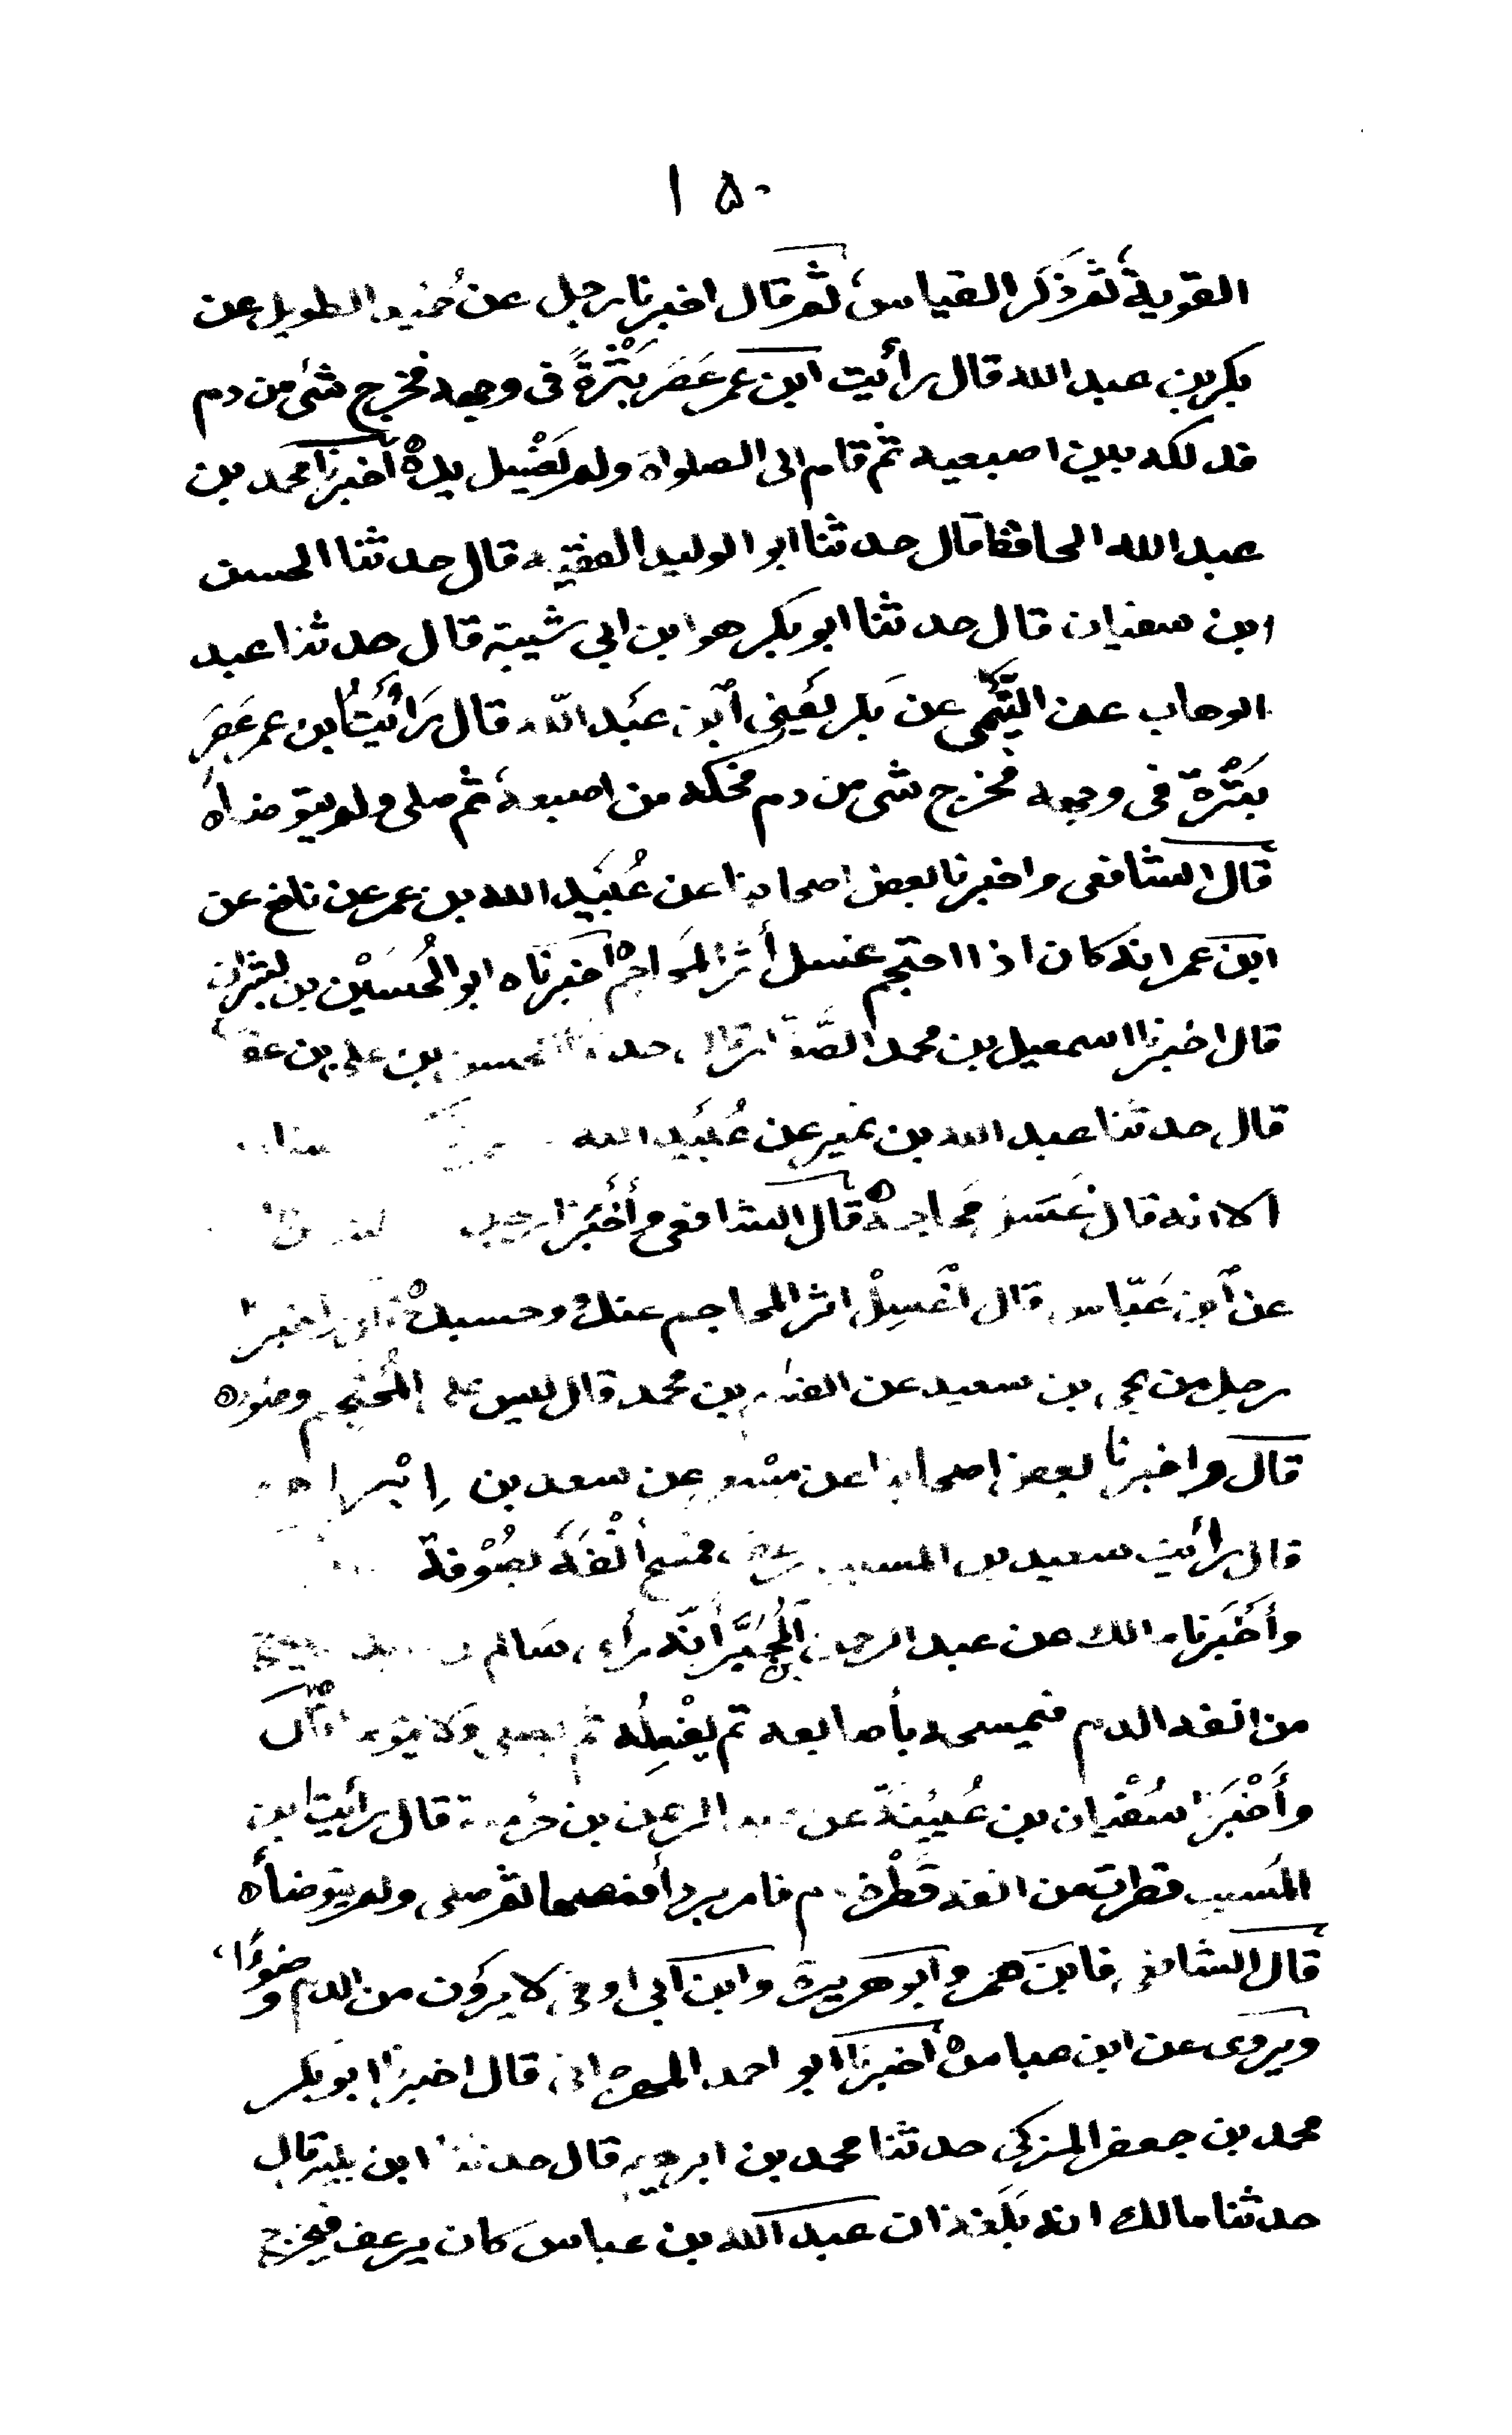 ١٥٠
القوية ثم ذكر القياس، ثم قال اخبرنا رجل عن حُميد الطويل عن
بكر بن عبد الله قال رأيت ابن عمر عَصَرَ بَثْرَةً فى وجهه فخرج شئ من دم
فدلكه بين اصبعيه ثم قام الى الصلواة ولم يغسل يده أخبرنا محمد بن
عبد الله الحافظ قال حدثنا ابو الوليد الفقيه قال حدثنا الحسن
ابن سفيان قال حدثنا ابو بكر هو ابن ابي شيبة قال حدثنا عبد
الوهاب عن التَّيْمى عن بَكر يَعنِى ابن عبد الله قال رَأَيْتُ ابن عمر عَصَرَ
بَثْرَة فى وجهه فخرج شى من دم فحكه من اصبعه ثم صلى ولم يتوضأ ه
قال الشافعى واخبرنا بعض اصحابنا عن عُبَيد الله بن عمر عن نافع عن
ابن عمر انه كان اذا احتجم غسل أثر المَحاجم ه اخبرناه ابو الحُسَيْن بن بشران
قال اخبرنا اسمعيل بن محمد الصَّفار قال حدثنا الحسن بن على بن عفا
قال حدثنا عبد الله بن نمير عن عُبَيد الله
الا انه قال غَسَل مَحاجمه ه قال الشافعى وأَخْبَرنا رجل
عن ابن عَبّاس قال اغْسِلْ اثر المحاجم عنك وحسبك ه قال واخبرنا
رجل عن يحيى بن سعيد عن القاسم بن محمد قال ليس على المُحْتجم وضوء ه
قال واخبرنا بعض اصحابنا عن مِسْعر عن سعد بن اِبْراهيم
قال رأيت سعيد بن المسيب رعف فمسح أَنْفَه بصُوْفة
وأَخْبَرنا مالك عن عبد الرحمن بن المُجَبَّر أنّه رأى سَالم بن عبد يخرج
من انفه الدم فيمسحه بأصابعه ثم يفْتِلُه ثم يصلى ولا يتوضأ قال
وأَخْبَرَنا سُفْيان بن عُيَيْنَة عن عبد الرحمن بن حرملة قال رأيت ابن
المُسيب قطرت من انفه قَطْرَة دم فامر بردأ فغسلها ثم صلى ولم يتوضأ ه
قال الشافعى، فابن عمر وابو هريرة وابن ابى اوفى لا يرون من الدم وضوءًا،
ويروى عن ابن عباس ه أخبرنا ابو احمد المهرجانى قال اخبرنا ابو بكر
محمد بن جعفر المزكى حدثنا محمد بن ابرهيم قال حدثنا ابن بكير قال
حدثنا مالك انه بَلَغه ان عبد الله بن عباس كان يرعف فيخرج